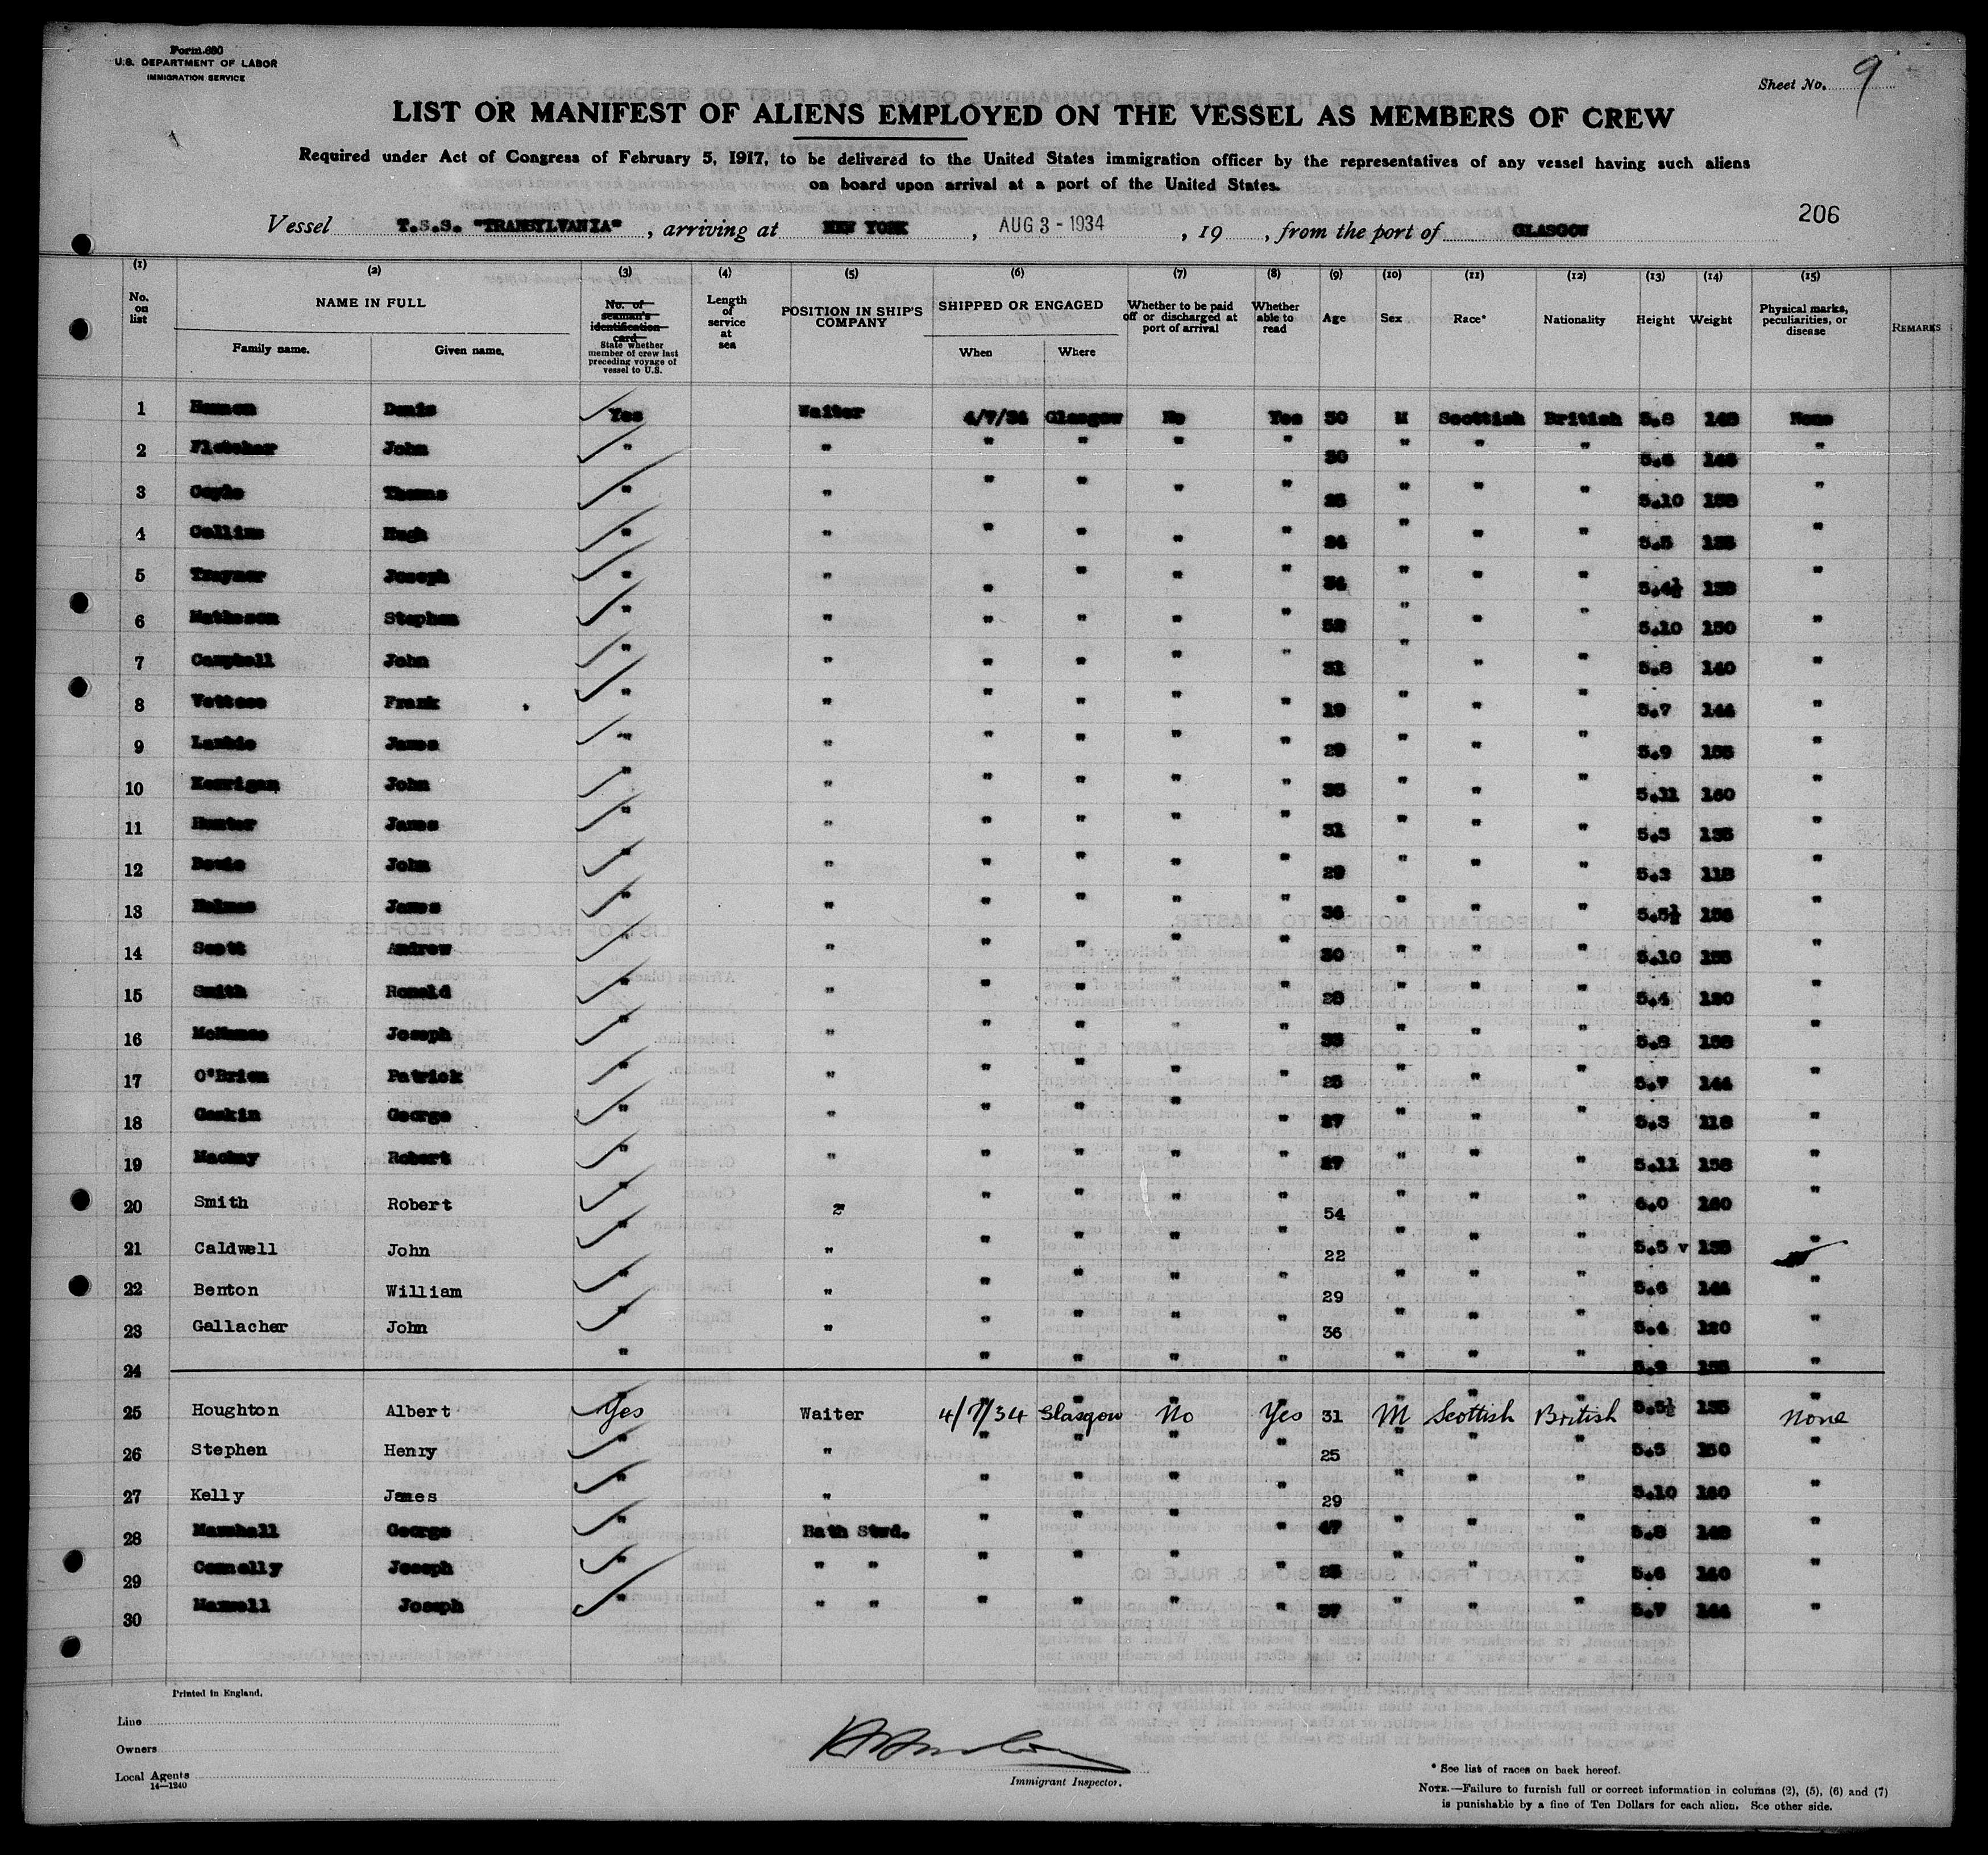 Form 680
U.S. DEPARTMENT OF LABOR
IMMIGRATION SERVICE
Sheet No. 9
LIST OR MANIFEST OF ALIENS EMPLOYED ON THE VESSEL AS MEMBERS OF CREW
Required under Act of Congress of February 5, 1917, to be delivered to the United States immigration officer by the representatives of any vessel having such aliens
on board upon arrival at a port of the United States.
206
Vessel T.S.S. "TRANSYLVANIA", arriving at NEW YORK, AUG 3 - 1934, 19, from the port of GLASGOW
(1) (2) (3) (4) (5) (6) (7) (8) (9) (10) (11) (12) (13) (14) (15)
No. on list NAME IN FULL Family name. Given name. No. of seaman's identification card State whether member of crew last preceding voyage of vessel to U.S. Length of service at sea POSITION IN SHIP'S COMPANY SHIPPED OR ENGAGED When Where Whether to be paid off or discharged at port of arrival Whether able to read Age Sex Race* Nationality Height Weight Physical marks, peculiarities, or disease REMARKS
1 Denis Yes Waiter 4/7/34 Glasgow No Yes 30 M Scottish British 5.8 148 None
2 Fletcher John " " " " " " 30 " " " "
3 Coyle Thomas " " " " " " " " " 5.10 "
4 Collins Hugh " " " " " " " " " 5.5 "
5 Traynor Joseph " " " " " " 34 " " " 5.4½ "
6 Matheson Stephen " " " " " " " " " 5.10 150 "
7 Campbell John " " " " " " 31 " " " 5.8 140 "
8 Vettese Frank " " " " " " 19 " " " 5.7 144 "
9 James " " " " " " 29 " " " 5.9 "
10 Kerrigan John " " " " " " " " " 5.11 160 "
11 Hunter James " " " " " " 31 " " " "
12 Bowie John " " " " " " 29 " " " "
13 Holmes James " " " " " " 36 " " " 5.5½ "
14 Scott Andrew " " " " " " 30 " " " 5.10 "
15 Smith Ronald " " " " " " 28 " " " 5.4 120 "
16 Joseph " " " " " " " " " 5.8 "
17 O'Brien Patrick " " " " " " " " " 5.7 144 "
18 Gaskin George " " " " " " 27 " " " 5.3 118 "
19 Mackay Robert " " " " " " 27 " " " 5.11 158 "
20 Smith Robert " " " " " " 54 " " " 6.0 160 "
21 Caldwell John " " " " " " 22 " " " 5.5 v 135 "
22 Benton William " " " " " " 29 " " " 5.6 144 "
23 Gallacher John " " " " " " 36 " " " 5.4 120 "
24 " " " " " " " " 5.9 "
25 Houghton Albert Yes Waiter 4/7/34 Glasgow No Yes 31 M Scottish British 5.5½ 135 None
26 Stephen Henry " " " " " " 25 " " " 5.5 "
27 Kelly James " " " " " " 29 " " " 5.10 160 "
28 Marshall George " Bath Stwd. " " " " 47 " " " 5.8 148 "
29 Connelly Joseph " " " " " " " " " " 5.6 140 "
30 Maxwell Joseph " " " " " " " 37 " " " 5.7 144 "
Printed in England.
Line
Owners
Local Agents
14—1240
Immigrant Inspector.
* See list of races on back hereof.
NOTE.—Failure to furnish full or correct information in columns (2), (5), (6) and (7)
is punishable by a fine of Ten Dollars for each alien. See other side.